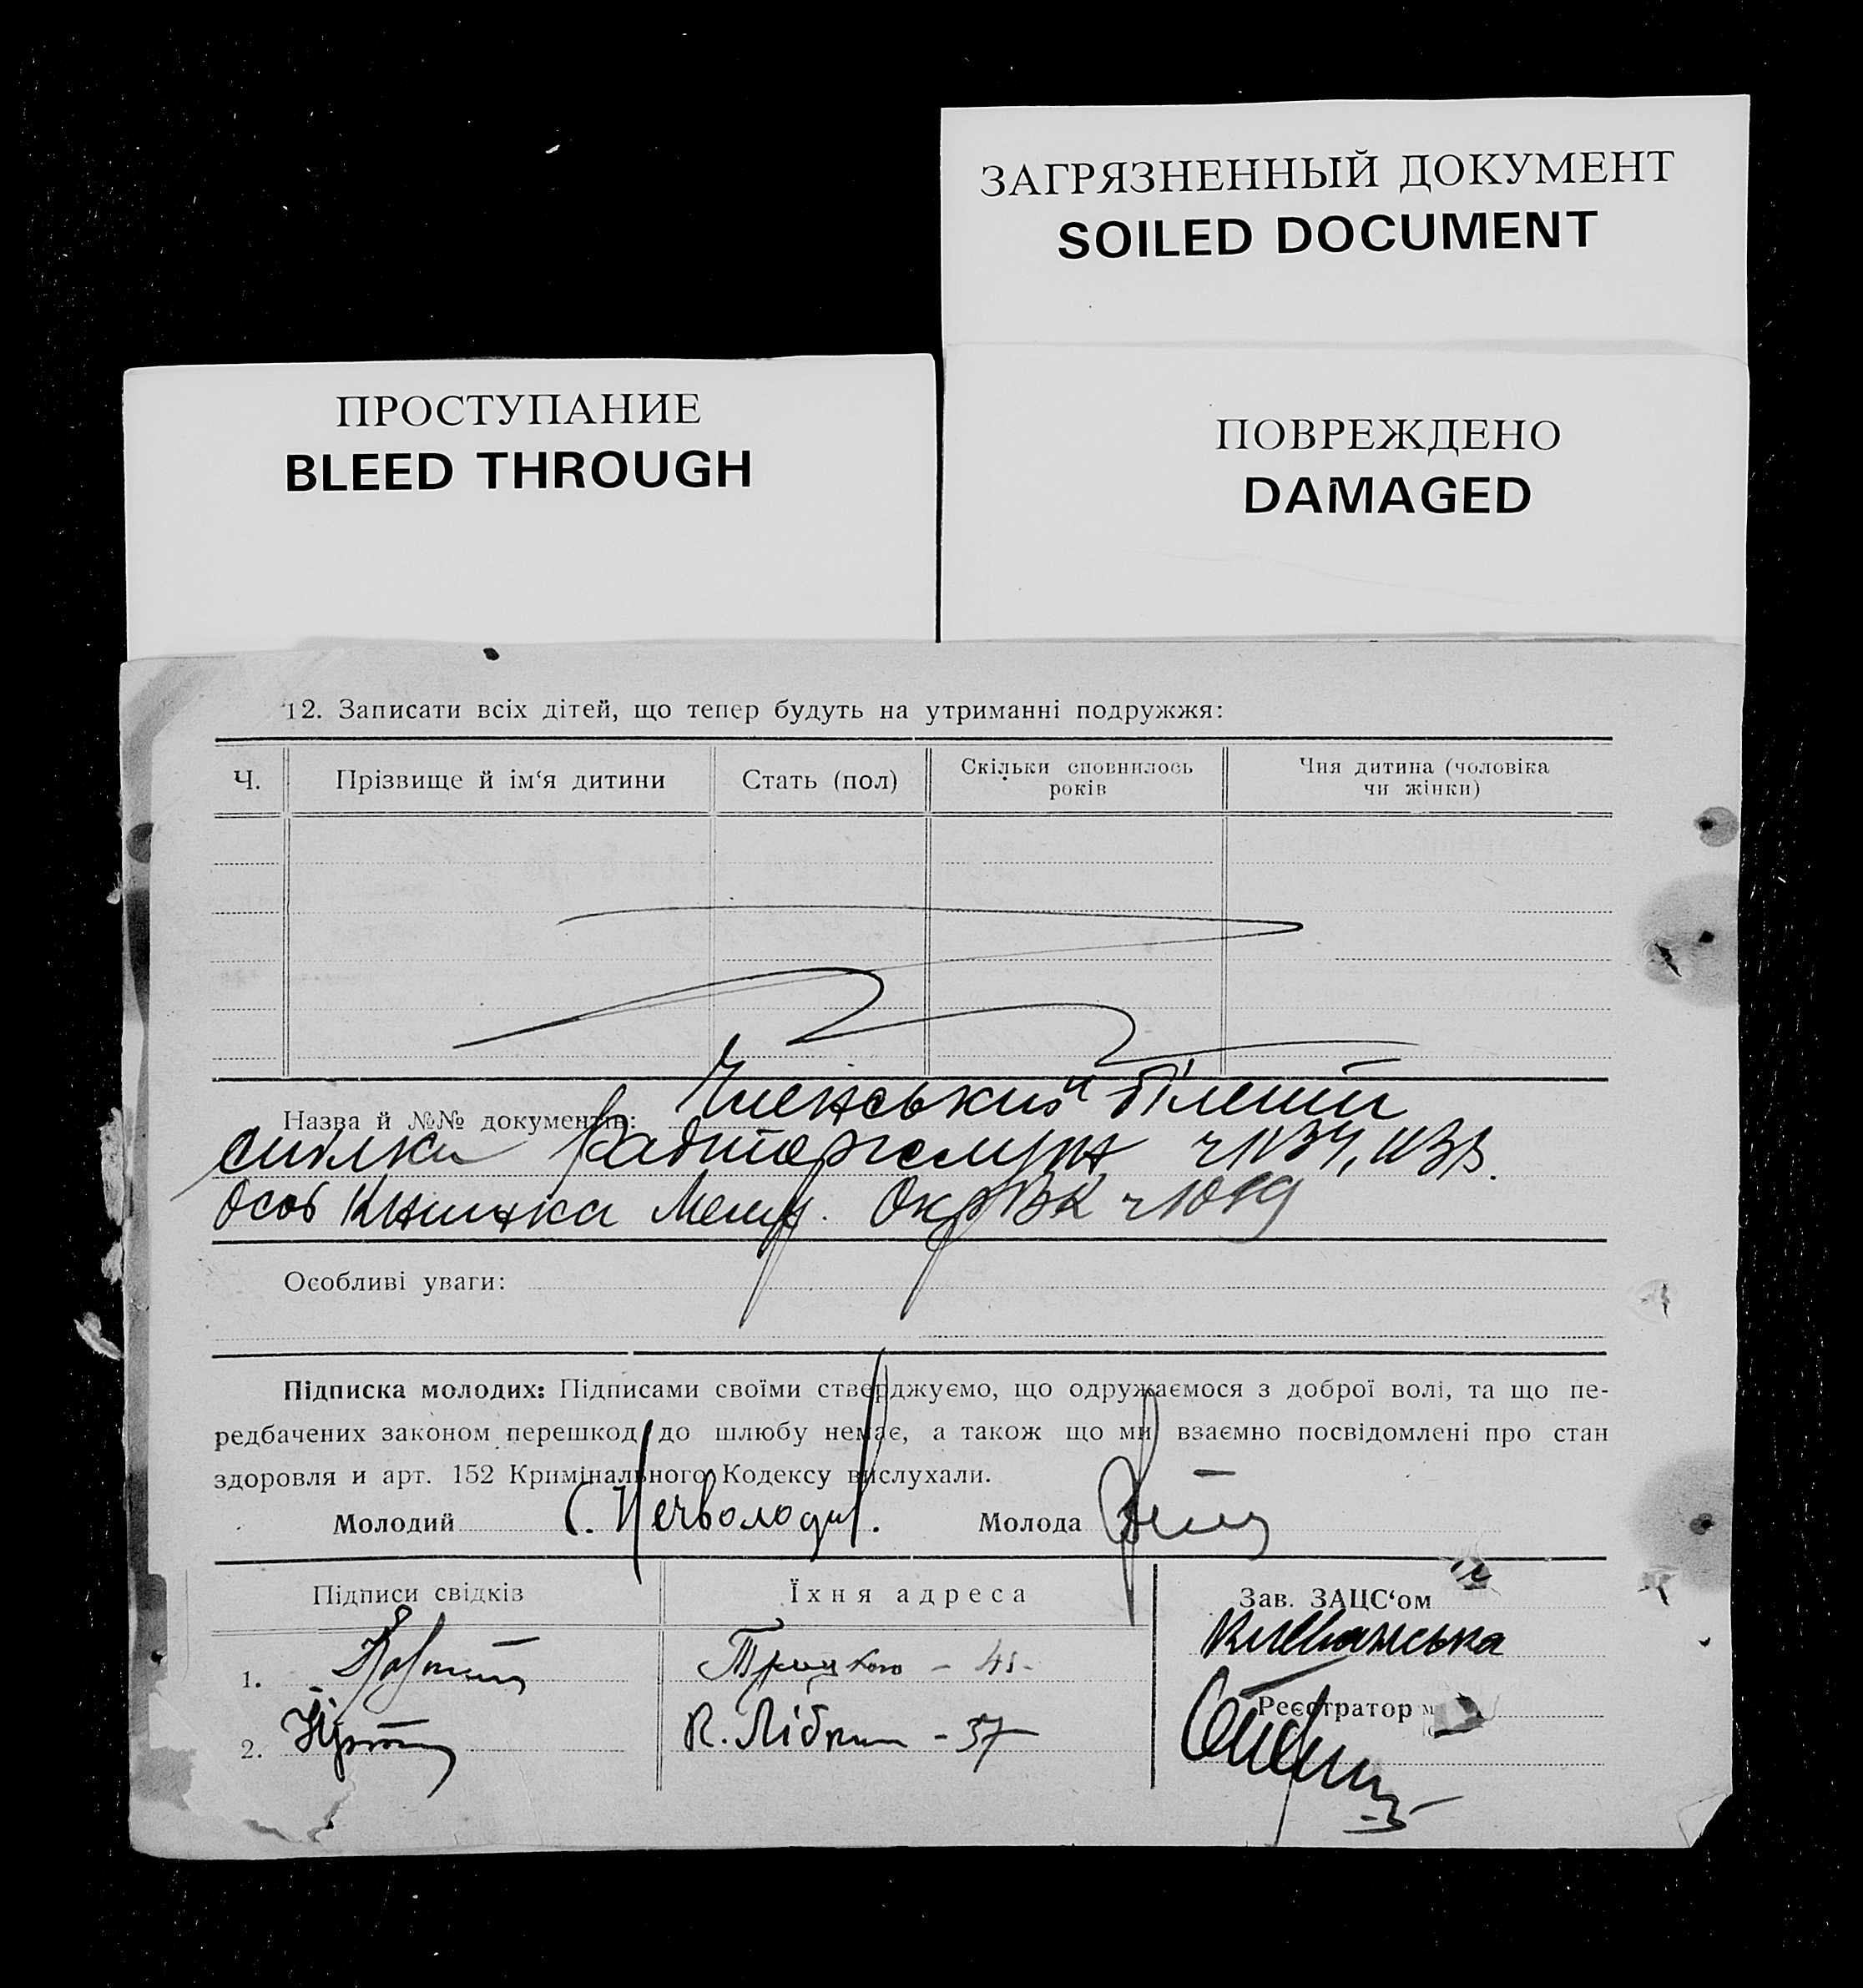 ЗАГРЯЗНЕННЫЙ ДОКУМЕНТ
SOILED DOCUMENT
ПРОСТУПАНИЕ
BLEED THROUGH
ПОВРЕЖДЕНО
DAMAGED
12. Записати всіх дітей, що тепер будуть на утриманні подружжя:
Ч. Прізвище й ім‘я дитини Стать (пол) Скільки сповнилось років Чия дитина (чоловіка чи жінки)
Назва й №№ документів: Членський білет
спілки Радторгслуж
Особ книжка Мелит. ОкрВК
Особливі уваги:
Підписка молодих: Підписами своїми стверджуємо, що одружаємося з доброї волі, та що пе-
редбачених законом перешкод до шлюбу немає, а також що ми взаємно посвідомлені про стан
здоровля и арт. 152 Кримінального Кодексу вислухали.
Молодий Молода
Підписи свідків Їхня адреса Зав. ЗАЦС‘ом
1. Троцького - 45
2. К. Лібкн - 57
Реєстратор